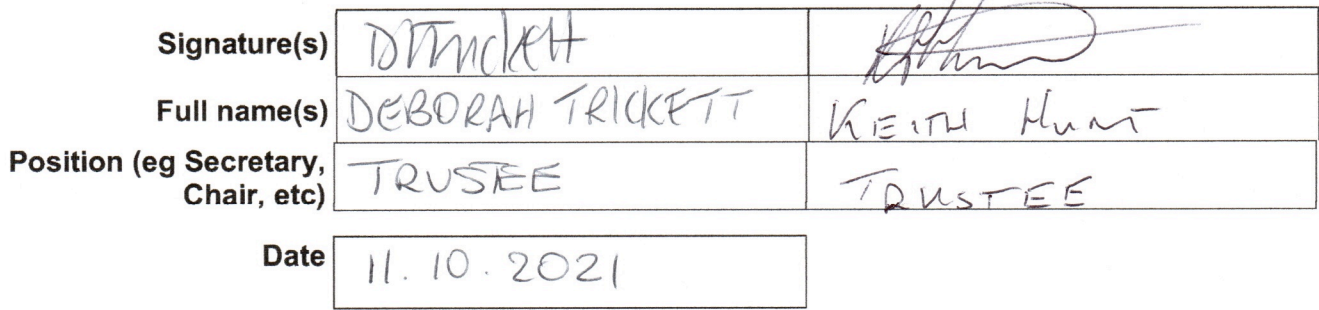 Signature(s) DTrickett
Full name(s) DEBORAH TRICKETT KEITH HUNT
Position (eg Secretary, TRUSTEE TRUSTEE
Chair, etc)
Date 11.10.2021